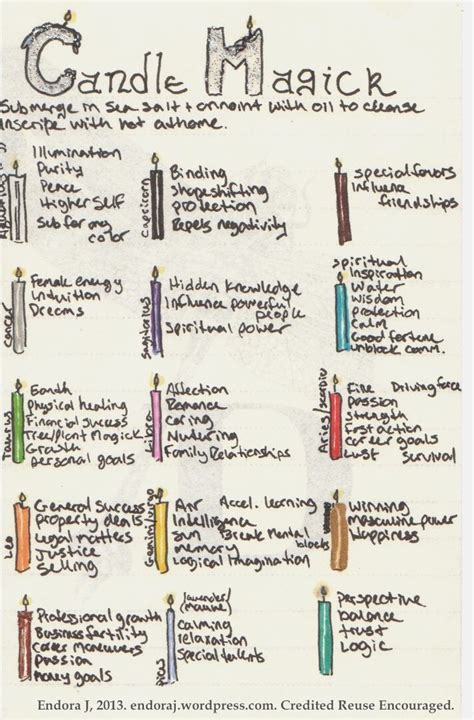 Candle Magick
Submerge in sea salt + annoint with oil to cleanse
Inscribe with hot athame.
Illumination
Purity
Peace
Higher Self
Sub for any
color
Capricorn
Binding
Shapeshifting
protection
Repels negativity
special favors
Influence
friendships
Cancer
Female energy
Intuition
Dreams
Sagitarius
Hidden Knowledge
Influence powerful
people
Spiritual power
spiritual
Inspiration
Water
Wisdom
protection
Calm
Good fortune
unblock comm.
Taurus
Earth
Physical healing
Financial success
Tree/Plant Magick
Growth
personal goals
Libra
Affection
Romance
Caring
Nuturing
Family Relationships
Aries/Scorpio
Fire Driving force
Passion
Strength
Fast action
Career goals
Lust Survival
Leo
General Success
property deals
Legal matters
Justice
Selling
Gemini/Virgo
Air Accel. learning
Intelligence
Sun Break Mental
memory blocks
Logical Imagination
Winning
Masculine power
Happiness
Professional growth
Business fertility
Career maneuvers
Passion
Money goals
lavender/
(mauve)
calming
relaxation
Special talents
perspective
balance
trust
Logic
Endora J, 2013. endoraj.wordpress.com. Credited Reuse Encouraged.